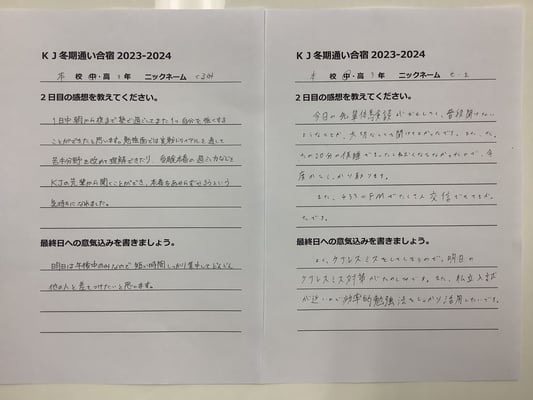 KJ冬期通い合宿 2023-2024
本 校 中・高 3年 ニックネーム
2日目の感想を教えてください。
1日中朝から夜まで塾で過ごしてまた1つ自分を強くする
ことができたと思います。勉強面では実戦トライアルを通して
苦手分野を改めて理解できたり、受験本番の過ごし方などを
KJの先輩から聞くことができ、本番もあきらめずやろうという
気持ちになれました。
最終日への意気込みを書きましょう。
明日は午後中のみなので短い時間しっかり集中してどんどん
他の人と差をつけたいと思います。
KJ冬期通い合宿 2023-2024
校 中・高 3年 ニックネーム
2日目の感想を教えてください。
今日の先輩 普段聞けない
ようなことが、 聞けてよかったです。また、
の20分の仮眠で ねむくなくなったので、今
度からしっかり
また、 FMでたくさん交信できてよかっ
たです。
最終日への意気込みを書きましょう。
よく、ケアレスミスをしてしまうので、明日の
ケアレスミス対策がたのしみです。また、私立入試
が近いので効率的勉強法をしっかり活用したいです。